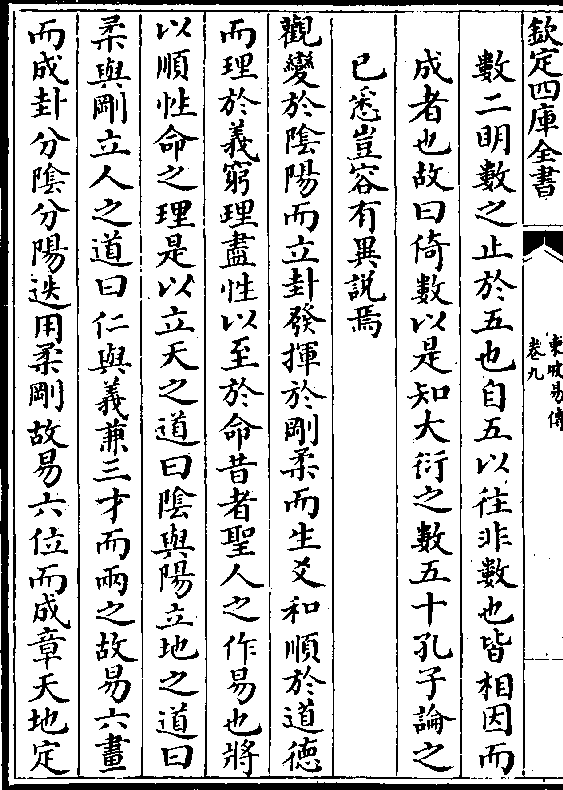 欽定四庫全書
東坡易傳
卷九
數二明數之止於五也自五以往非數也皆相因而
成者也故曰倚數以是知大衍之數五十孔子論之
已悉豈容有異説焉
觀變於陰陽而立卦發揮於剛柔而生爻和順於道德
而理於義窮理盡性以至於命昔者聖人之作易也將
以順性命之理是以立天之道曰陰與陽立地之道曰
柔與剛立人之道曰仁與義兼三才而兩之故易六畫
而成卦分陰分陽迭用柔剛故易六位而成章天地定